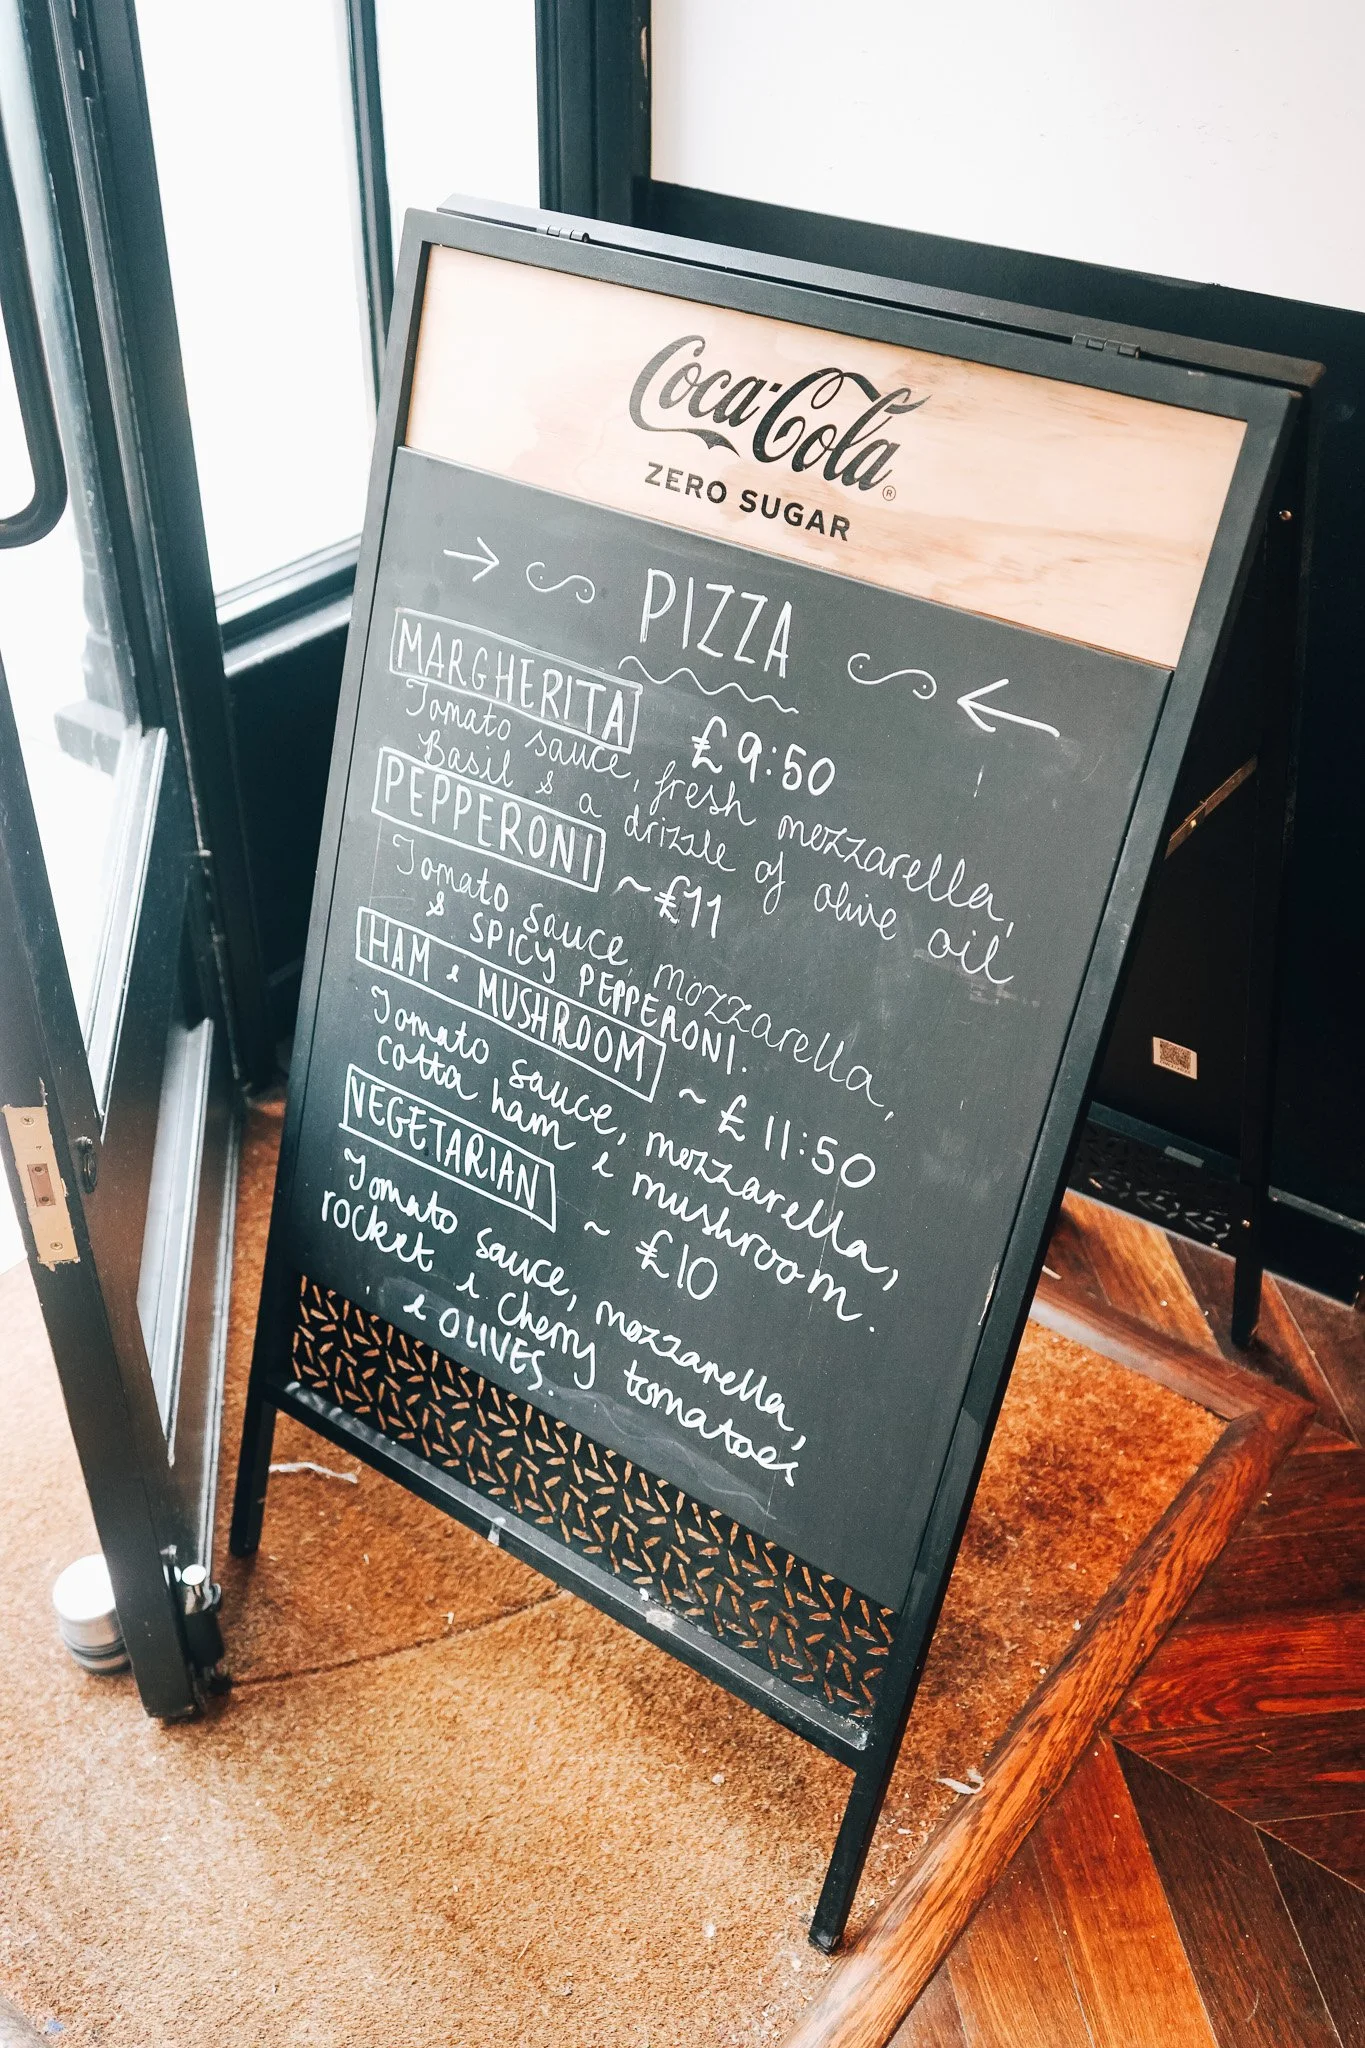 Coca-Cola®
ZERO SUGAR
→ PIZZA ←
MARGHERITA £9:50
Tomato sauce, fresh mozzarella,
Basil & a drizzle of olive oil
PEPPERONI ~ £11
Tomato sauce, mozzarella,
& SPICY PEPPERONI.
HAM & MUSHROOM ~ £11:50
Tomato sauce, mozzarella,
cotta ham & mushroom.
VEGETARIAN ~ £10
Tomato sauce, mozzarella,
rocket & cherry tomatoes
& OLIVES.